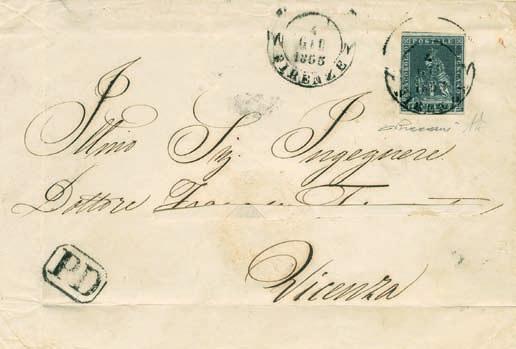 4
GIU
1855
FIRENZE
POSTALE
TOSCANO
Illmo Sig. Ingegnere
Dottore
Vicenza
PD